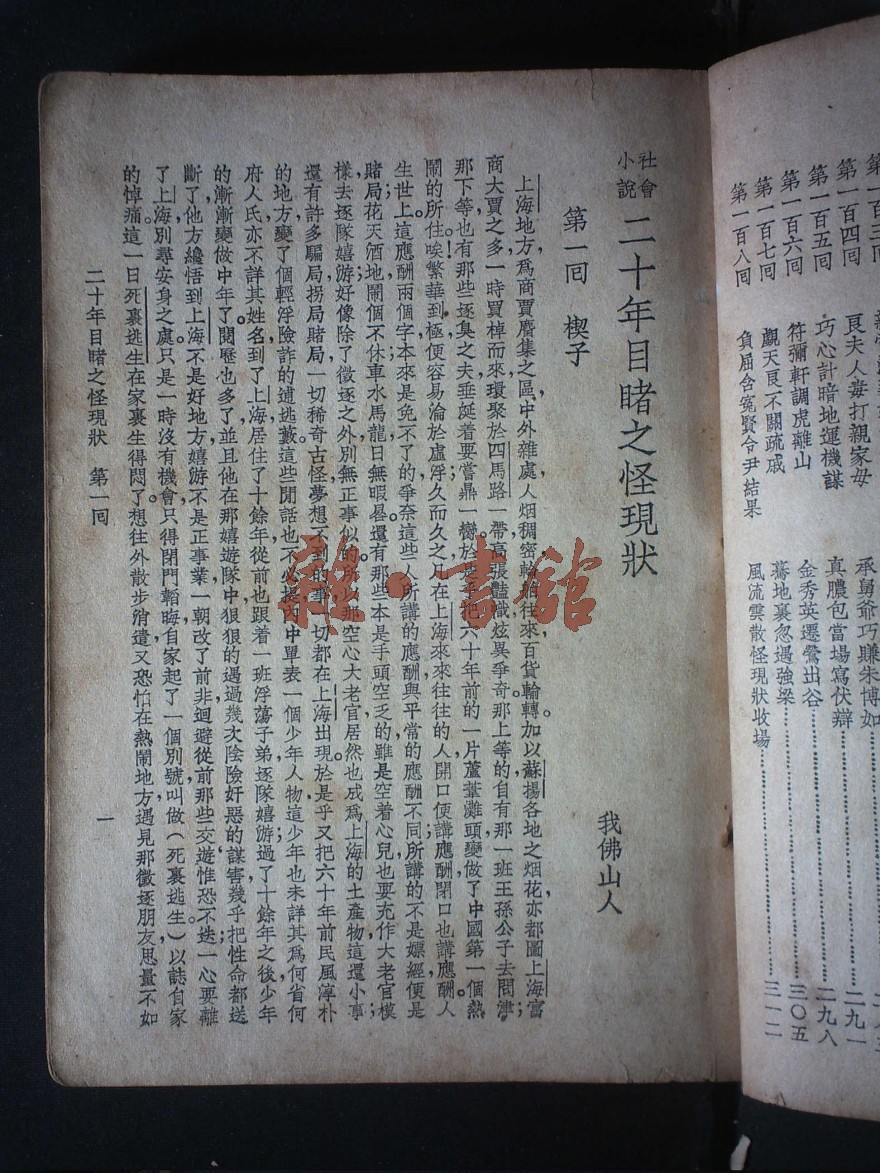 第一百四回
第一百五回
第一百六回
第一百七回
第一百八回
良夫人毒打親家母
巧心計暗地運機謀
符彌軒調虎離山
覷天良不關疏戚
負屈含冤賢令尹結果
承舅爺巧賺朱博如
真膿包當場寫伏辯
金秀英遷鶯出谷
驀地裏忽遇強梁
風流雲散怪現狀收場
二九一
二九八
三〇五
三一二
社會小說 二十年目睹之怪現狀
我佛山人
第一回 楔子
上海地方，為商賈麕集之區，中外雜處，人烟稠密，輪舶往來，百貨輸轉。加以蘇揚各地之烟花，亦都圖上海富
商大賈之多，一時買棹而來，環聚於四馬路一帶，高張豔幟，炫異爭奇。那上等的，自有那一班王孫公子去問津；
那下等也有那些逐臭之夫，垂涎着要嘗鼎一臠。於是乎把六十年前的一片蘆葦灘頭，變做了中國第一個熱
鬧的所在。唉！繁華到極，便容易淪於虛浮。久而久之，凡在上海來來往往的人，開口便講應酬，閉口也講應酬。人
生世上，這「應酬」兩個字，本來是免不了的；爭奈這些人所講的應酬，與平常的應酬不同。所講的不是嫖經，便是
賭局，花天酒地，鬧個不休，車水馬龍，日無暇晷。還有那些本是手頭空乏的，雖是空着心兒，也要充作大老官模
樣，去逐隊嬉游，好像除了徵逐之外，別無正事似的。所以那空心大老官，居然也成為上海的土產物。這還小事，
還有許多騙局、拐局、賭局，一切稀奇古怪，夢想不到的事，一切都在上海出現，於是乎又把六十年前民風淳朴
的地方，變了個輕浮險詐的逋逃藪。這些閒話，也不必提，內中單表一個少年人物。這少年也未詳其為何省何
府人氏，亦不詳其姓名。到了上海，居住了十餘年。從前也跟着一班浮蕩子弟，逐隊嬉游。過了十餘年之後，少年
的漸漸變做中年了，閱歷也多了；並且他在那嬉遊隊中，狠狠的遇過幾次陰險奸惡的謀害，幾乎把性命都送
斷了。他方纔悟到上海不是好地方，嬉游不是正事業，一朝改了前非，迴避從前那些交遊，惟恐不迭，一心要離
了上海，別尋安身之處。只是一時沒有機會，只得閉門韜晦，自家起了一個別號，叫做(死裏逃生)，以誌自家
的悼痛。這一日，死裏逃生在家裏生得悶了，想往外散步消遣，又恐怕在熱鬧地方，遇見那徵逐朋友，思量不如
二十年目睹之怪現狀 第一回
一